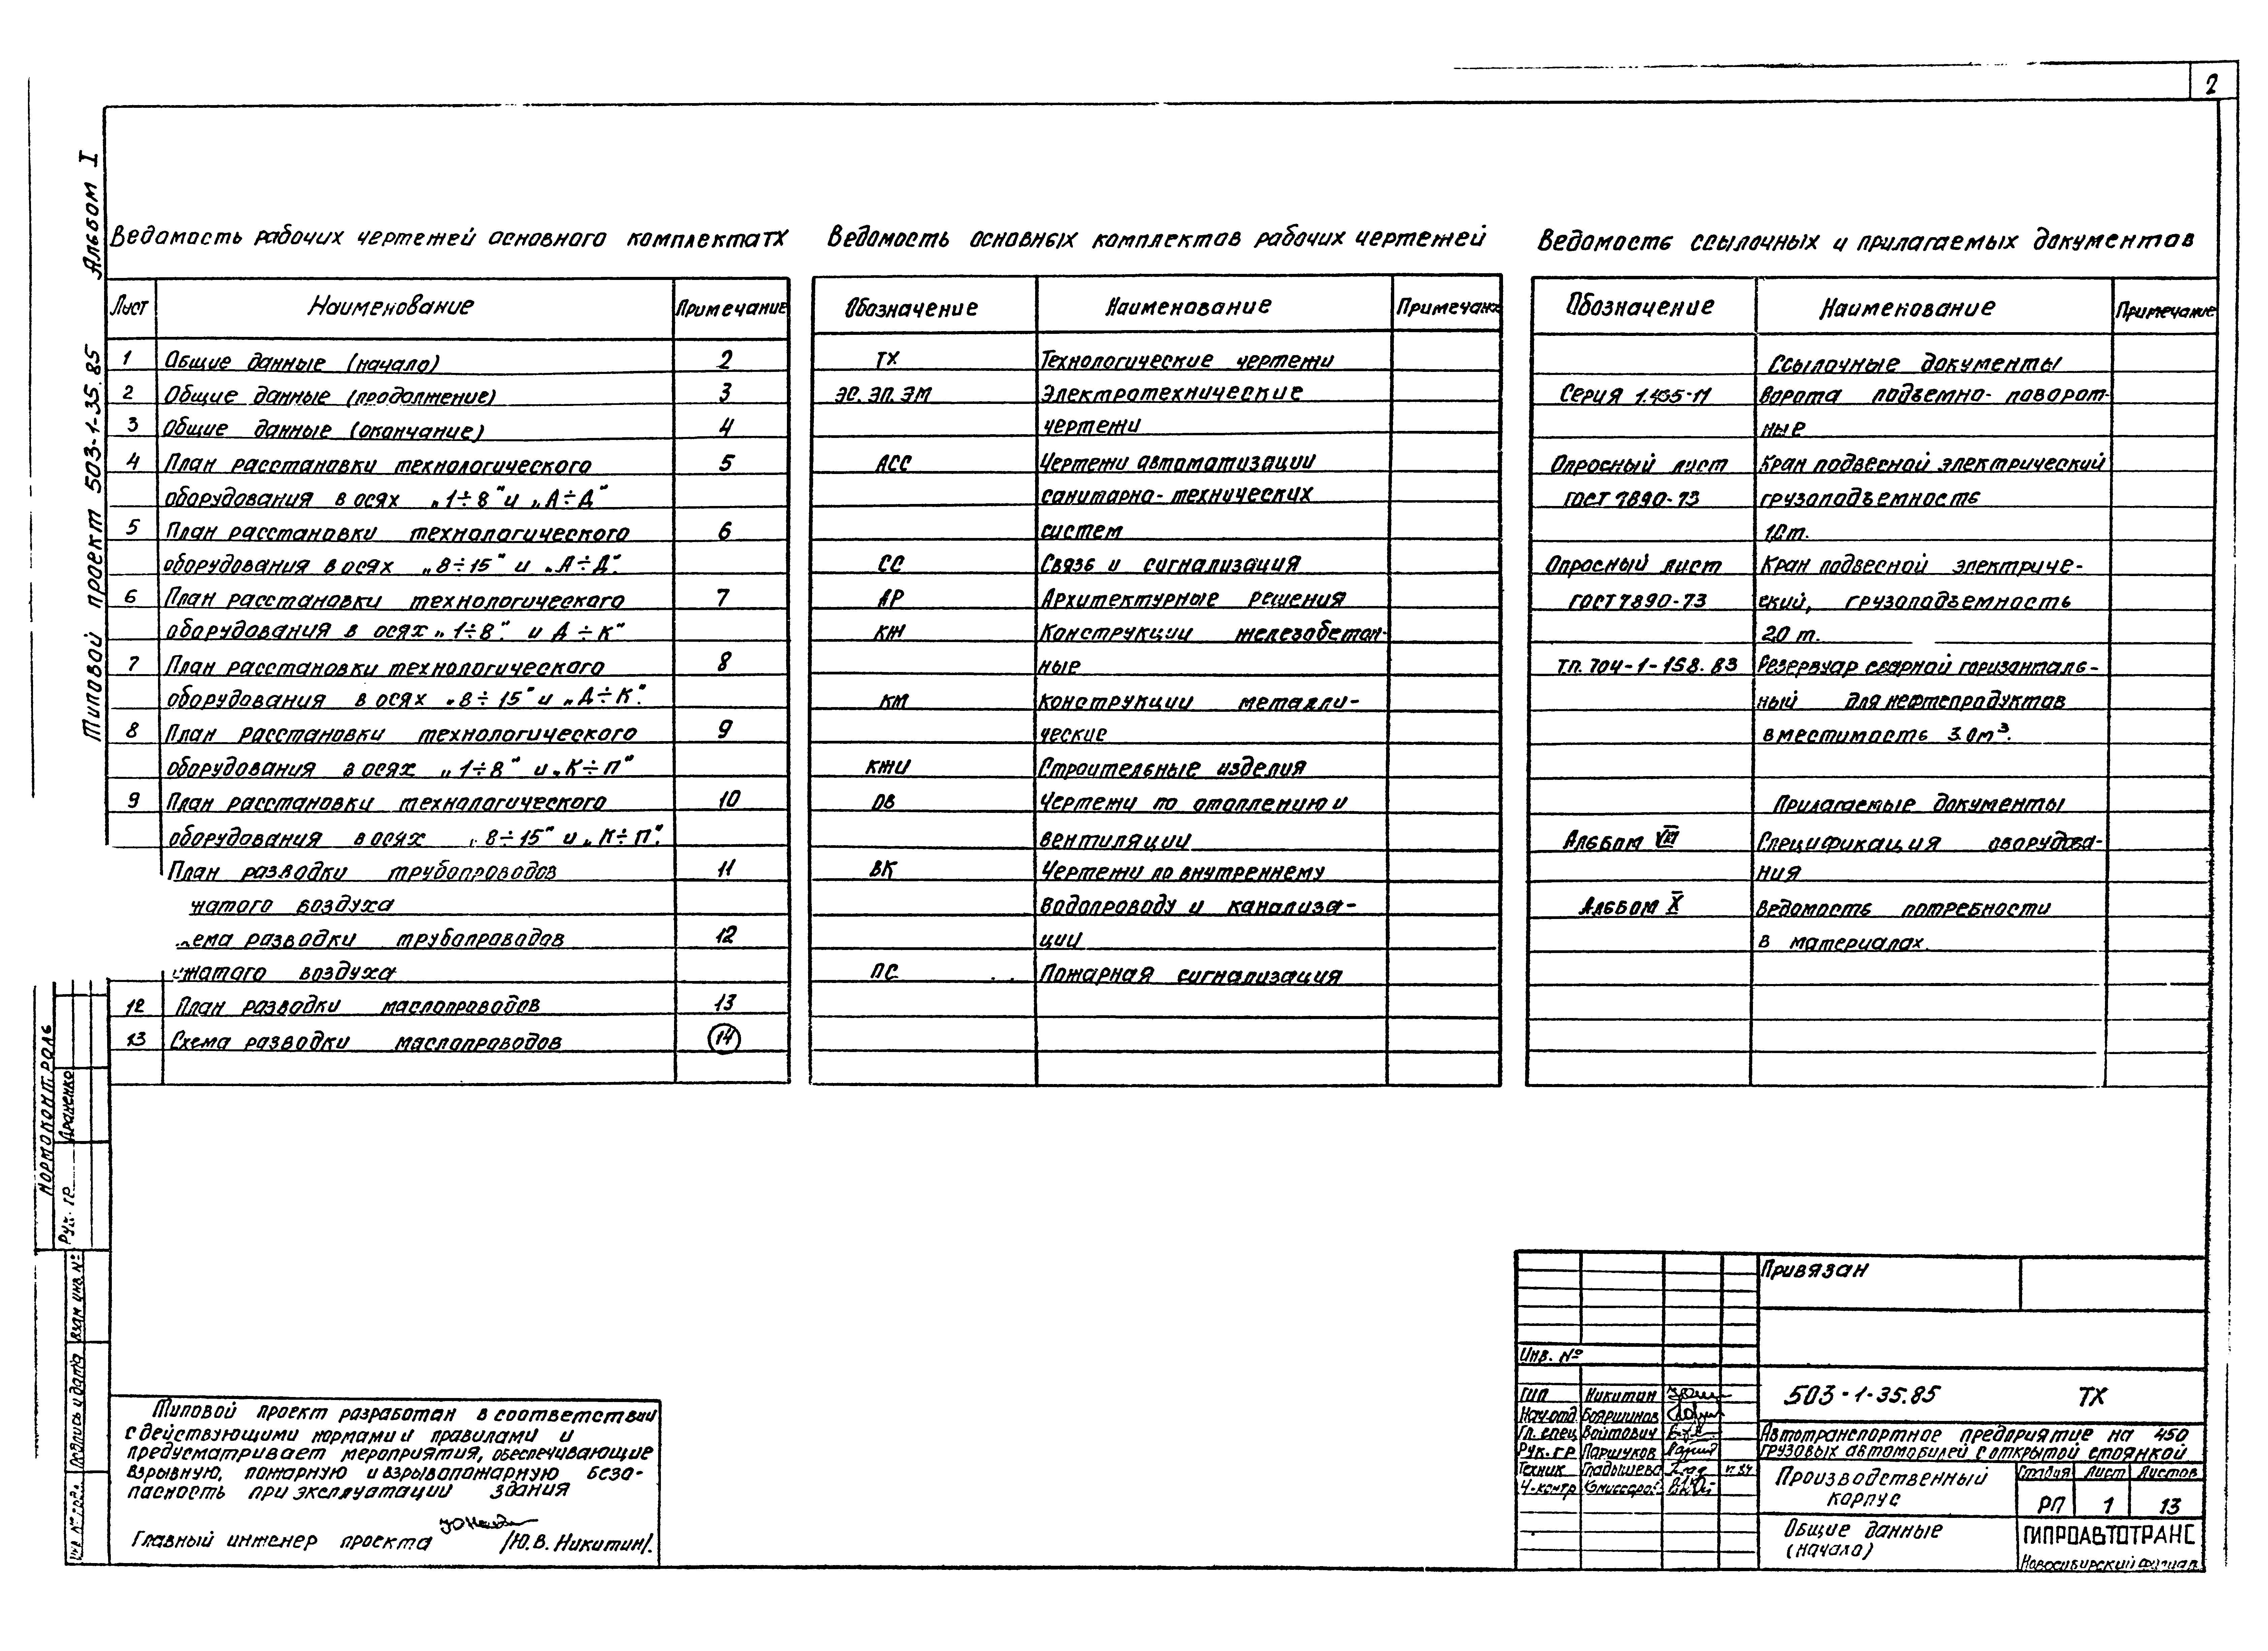 2
Альбом I
Типовой проект 503-1-35.85
Ведомость рабочих чертежей основного комплекта ТХ
Лист Наименование Примечание
1 Общие данные (начало) 2
2 Общие данные (продолжение) 3
3 Общие данные (окончание) 4
4 План расстановки технологического 5
оборудования в осях „1÷8" и „А÷Д"
5 План расстановки технологического 6
оборудования в осях „8÷15" и „А÷Д".
6 План расстановки технологического 7
оборудования в осях „1÷8". и Д÷К"
7 План расстановки технологического 8
оборудования в осях „8÷15" и „Д÷К".
8 План расстановки технологического 9
оборудования в осях „1÷8" и „К÷П"
9 План расстановки технологического 10
оборудования в осях „8÷15" и „К÷П".
План разводки трубопроводов 11
жатого воздуха
ема разводки трубопроводов 12
сжатого воздуха
12 План разводки маслопроводов 13
13 Схема разводки маслопроводов 14
Ведомость основных комплектов рабочих чертежей
Обозначение Наименование Примечани
ТХ Технологические чертежи
ЭС. ЭП. ЭМ Электротехнические
чертежи
АСС Чертежи автоматизации
санитарно-технических
систем
СС Связь и сигнализация
АР Архитектурные решения
КЖ Конструкции железобетон-
ные
КМ Конструкции металли-
ческие
КЖИ Строительные изделия
ОВ Чертежи по отоплению и
вентиляции
ВК Чертежи по внутреннему
водопроводу и канализа-
ции
ПС Пожарная сигнализация
Ведомость ссылочных и прилагаемых документов
Обозначение Наименование Примечание
Ссылочные документы
Серия 1.435-11 Ворота подъемно-поворот-
ные
Опросный лист Кран подвесной электрический
ГОСТ 7890-73 грузоподъемность
1,0т.
Опросный лист Кран подвесной электриче-
ГОСТ 7890-73 ский, грузоподъемность
2,0 т.
Т.П. 704-1-158.83 Резервуар сварной горизонталь-
ный для нефтепродуктов
вместимость 3.0м³.
Прилагаемые документы
Альбом VIII Спецификация оборудова-
ния
Альбом X Ведомость потребности
в материалах.
Нормоконтроль
Рук. гр. Драненко
Взам инв. №
Подпись и дата
Инв. № подл.
Типовой проект разработан в соответствии
с действующими нормами и правилами и
предусматривает мероприятия, обеспечивающие
взрывную, пожарную и взрывопожарную безо-
пасность при эксплуатации здания
Главный инженер проекта /Ю.В. Никитин/.
Привязан
Инв. №
ГИП Никитин
Нач.отд. Бояршинов
Гл. спец Войтович
Рук.гр Паршуков
Техник Гладышева
Н-контр
503-1-35.85 ТХ
Автотранспортное предприятие на 450
грузовых автомобилей с открытой стоянкой
Производственный
корпус
Стадия Лист Листов
РП 1 13
Общие данные
(начало)
ГИПРОАВТОТРАНС
Новосибирский филиал